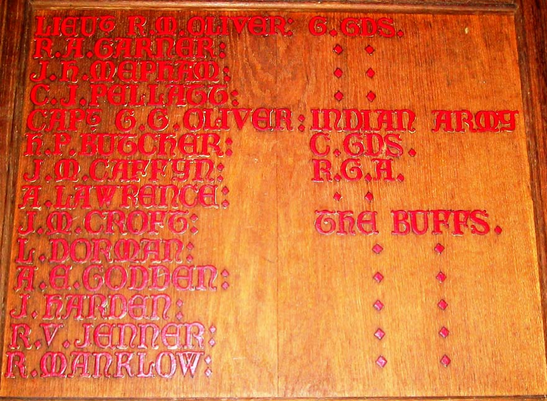 LIEUT R.M.OLIVER: G.GDS.
R.A.GARNER: ⬥ ⬥
J.H.MEPHAM: ⬥ ⬥
C.J.PELLATT: ⬥ ⬥
CAPT G.G.OLIVER: INDIAN ARMY
H.P.BUTCHER: C.GDS.
J.M.CAFFYN: R.G.A.
A.LAWRENCE: ⬥ ⬥
J.M.CROFT: THE BUFFS.
L.DORMAN: ⬥ ⬥
A.E.GODDEN: ⬥ ⬥
J.HARDEN: ⬥ ⬥
R.V.JENNER: ⬥ ⬥
R.MANKLOW: ⬥ ⬥